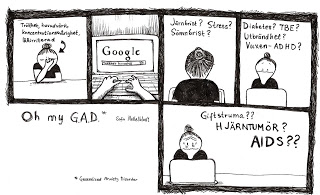 Trötthet, huvudvärk,
koncentrationssvårighet,
lättirriterad
Google
Järnbrist? Stress?
Sömnbrist?
Diabetes? TBE?
Utbrändhet?
Vuxen-ADHD?
Oh my G.A.D.*
Giftstruma??
HJÄRNTUMÖR?
AIDS??
* Generalized Anxiety Disorder